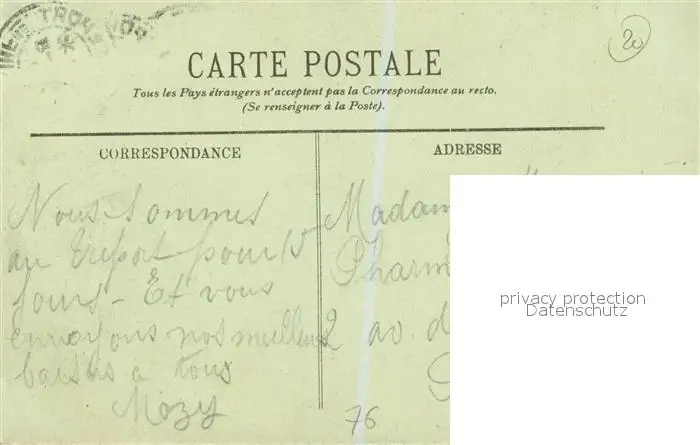 20
CARTE POSTALE
Tous les Pays étrangers n'acceptent pas la Correspondance au recto.
(Se renseigner à la Poste).
CORRESPONDANCE
ADRESSE
Nous sommes
au Treport pour 15
jours - Et vous
envoyons nos meilleurs
baisers a tous
Mozy
Madam
Pharm
2 av. d
76
privacy protection
Datenschutz